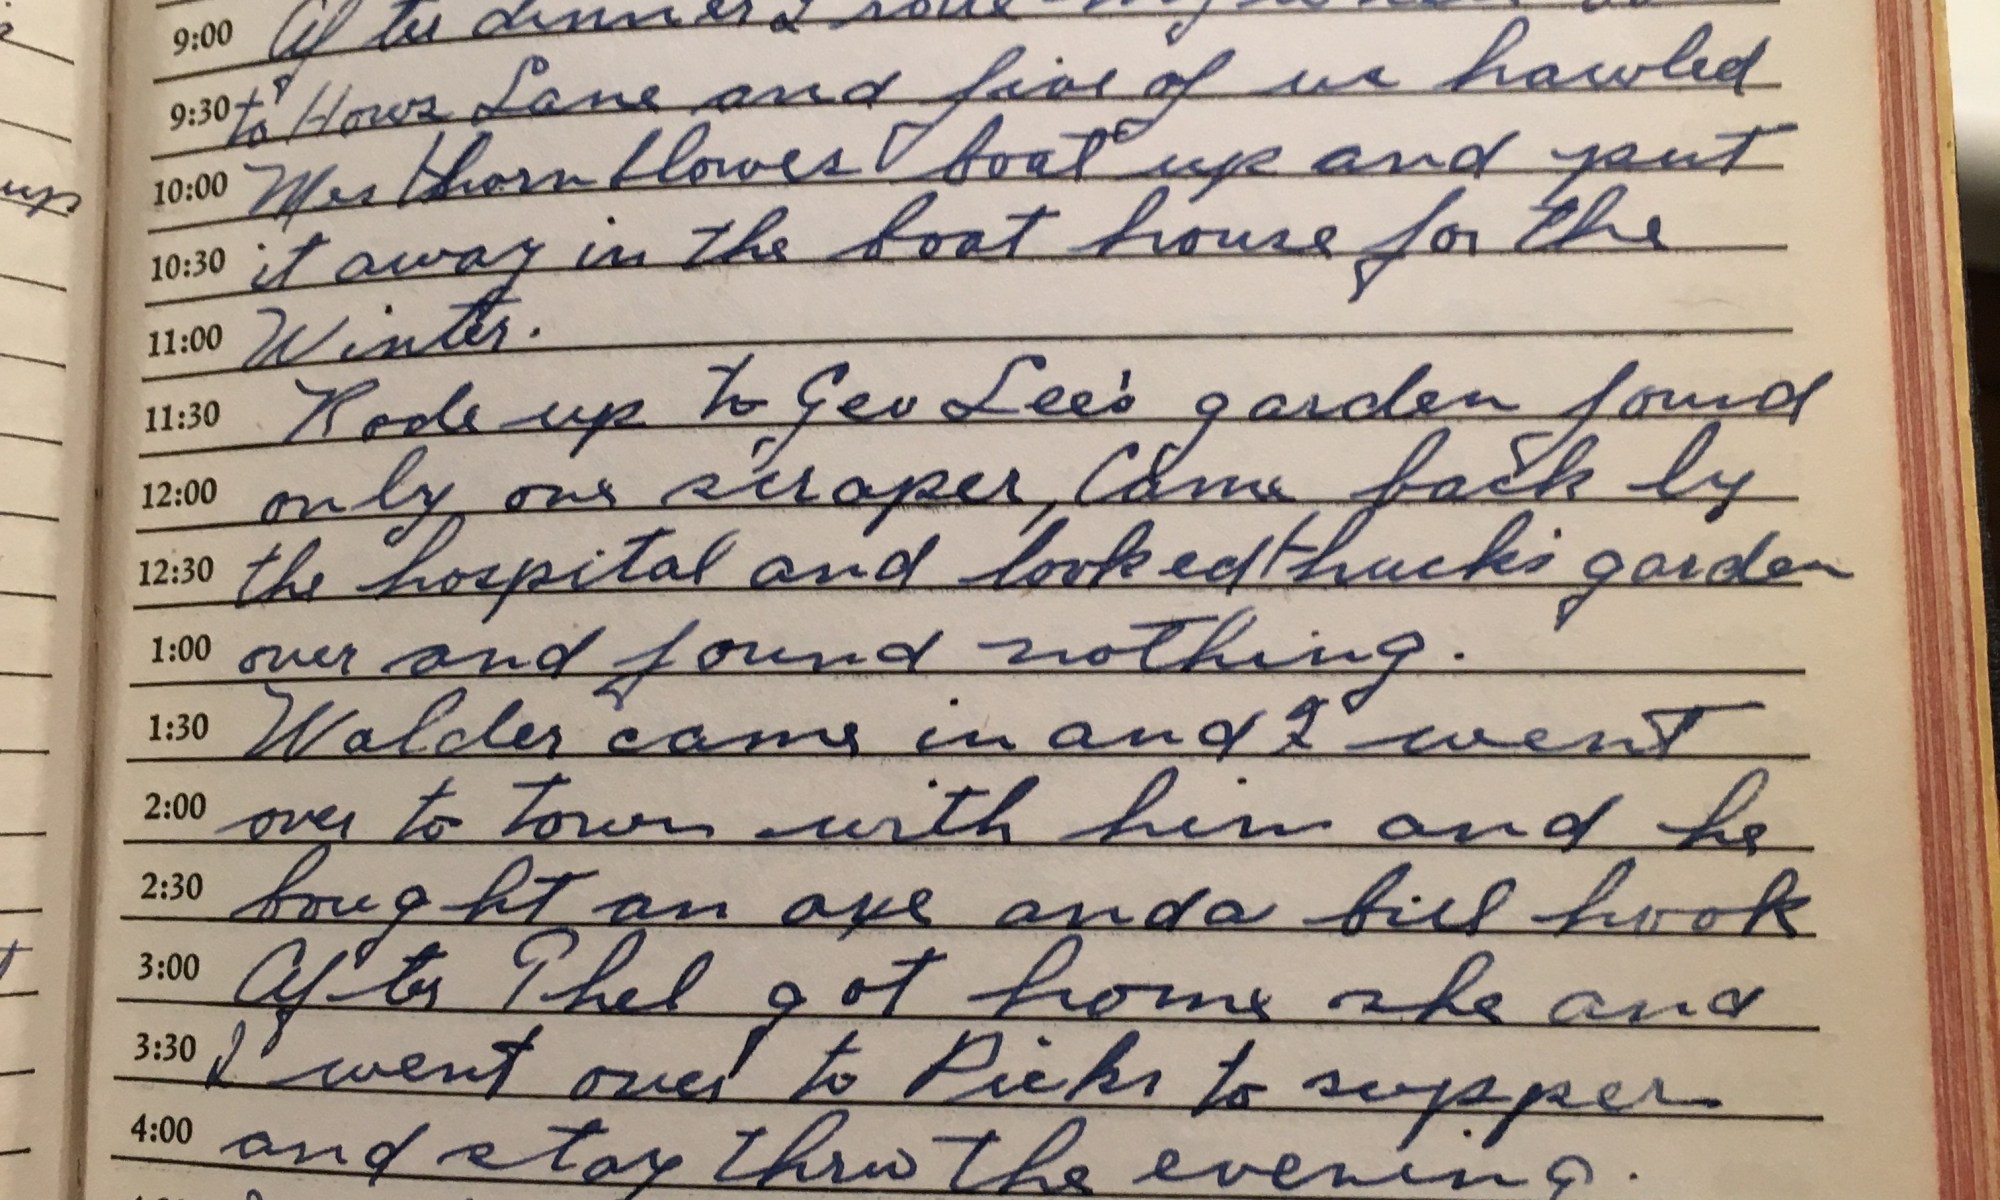 9:00 After dinner I rode my
9:30 to Hows Lane and five of us hawled
10:00 Mrs thornblowes boat up and put
10:30 it away in the boat house for the
11:00 Winter.
11:30 Rode up to Geo Lee's garden found
12:00 only one scraper, Came back by
12:30 the hospital and looked thuck's garden
1:00 over and found nothing.
1:30 Walder came in and I went
2:00 over to town with him and he
2:30 bought an axe and a bill hook
3:00 After Phel got home she and
3:30 I went over to Picks to supper
4:00 and stay thru the evening.
up